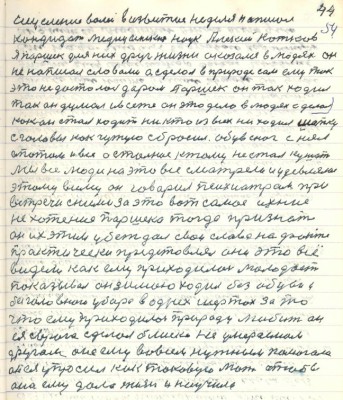 44
54
кандидат медицинских наук Алексей Котисов
Паршек для них друг жизни оказался в людях он
не написал словами а сделал в природе сам ему так
это не досталось даром Паршек он так ходил
так он думал и всё это он это дело в людях сделал
как он стал ходить никто из них не ходил шапку
с головы как чужую сбросил. обувь с ног снял
а потом и все остальные к тому не стал кушать
Мы все люди на это все смотрели и удивлялись
этому всему он говорил психиатрам при
встречи с ними за это вот самое ихние
не хотение Паршека тогда признать
он их этим убеждал свои слова на
практически представлял они это всё
видели как ему приходилось молодость
показывал он зимою ходил без обуви и
без головного убора в одних шортах за то
что ему приходилось природу любить он
её сделал близко не умираемым
другом она ему во всем нужным помогала
он её упросил как таковую мать чтобы
она ему дала жизь и научила